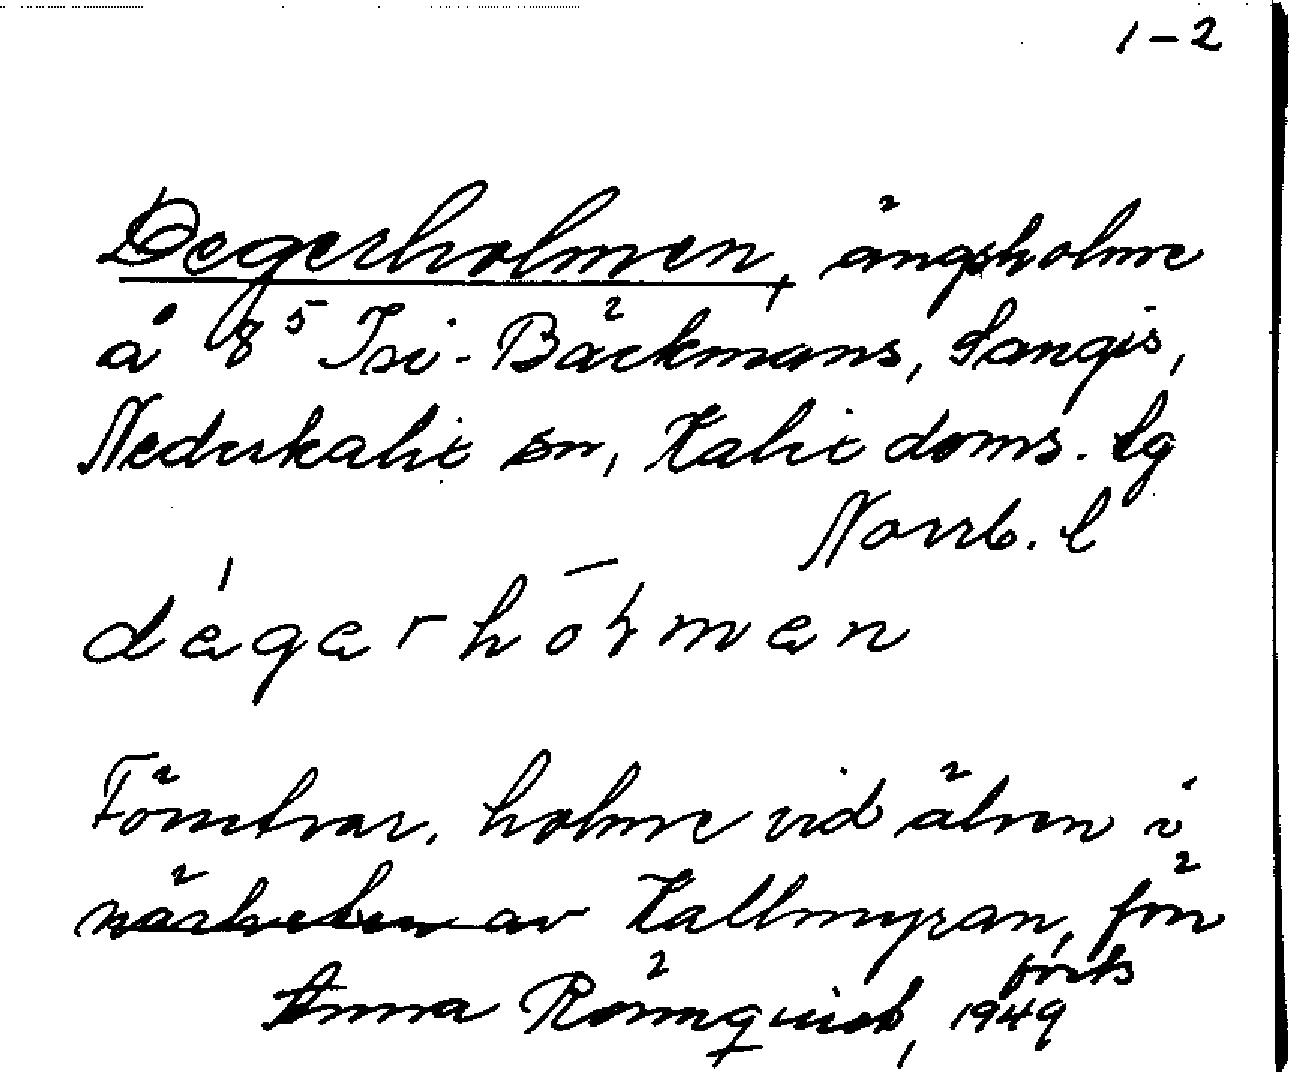 1-2
Degerholmen, ängsholme
å 8⁵ Isi-Bäckmans, Sangis,
Nederkalix sn, Kalix doms. lg
Norrb. l
Förutvar. holme vid älven i
närheten av Kallmyran, för
Anna Rönnquist, 1949